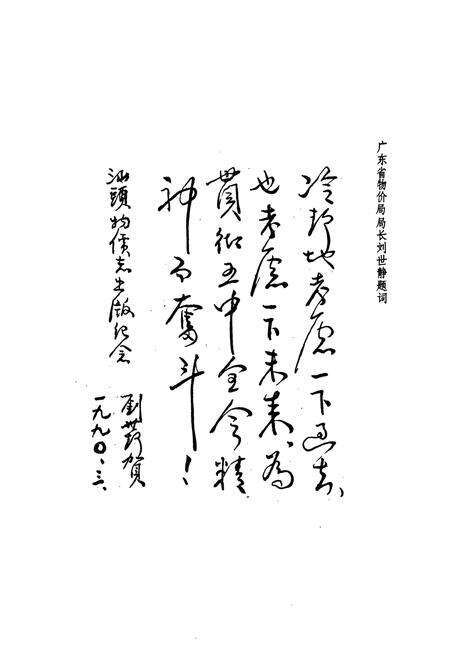 广东省物价局局长刘世静题词
冷静地考虑一下过去、
也考虑一下未来、為
貫彻五中全会精
神而奮斗！
汕頭物價志出版纪念
劉世静賀
一九九〇、三、